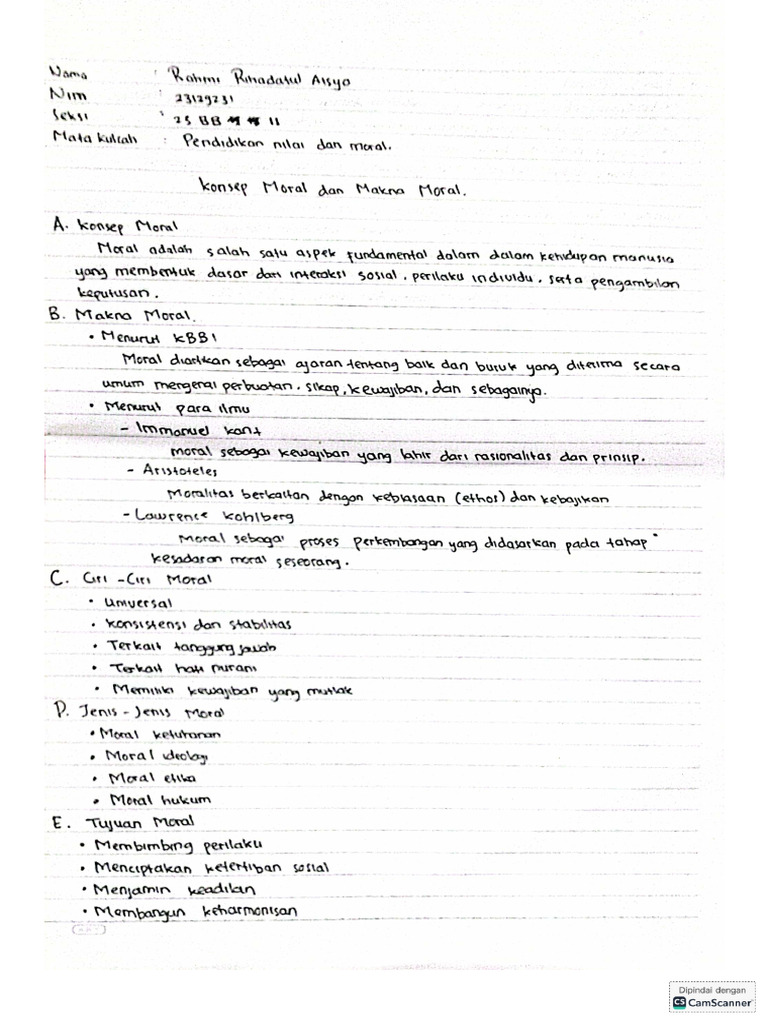 Nama : Rahmi Rihadatul Aisya
Nim : 23129231
Seksi : 25 BB 11
Mata kuliah : Pendidikan nilai dan moral.
Konsep Moral dan Makna Moral.
A. Konsep Moral
Moral adalah salah satu aspek fundamental dalam dalam kehidupan manusia
yang membentuk dasar dari interaksi sosial, perilaku individu, serta pengambilan
keputusan.
B. Makna Moral.
• Menurut KBBI
Moral diartikan sebagai ajaran tentang baik dan buruk yang diterima secara
umum mengenai perbuatan, sikap, kewajiban, dan sebagainya.
• Menurut para ilmu
- Immanuel kant
moral sebagai kewajiban yang lahir dari rasionalitas dan prinsip.
- Aristoteles
Moralitas berkaitan dengan kebiasaan (ethos) dan kebajikan
- Lawrence Kohlberg
Moral sebagai proses perkembangan yang didasarkan pada tahap"
kesadaran moral seseorang.
C. Ciri - Ciri Moral
• universal
• Konsistensi dan stabilitas
• Terkait tanggung jawab
• Terkait hati nurani
• Memiliki kewajiban yang mutlak
D. Jenis - Jenis Moral
• Moral ketuhanan
• Moral ideologi
• Moral etika
• Moral hukum
E. Tujuan Moral
• Membimbing perilaku
• Menciptakan ketertiban sosial
• Menjamin keadilan
• Membangun keharmonisan
Dipindai dengan
CS CamScanner